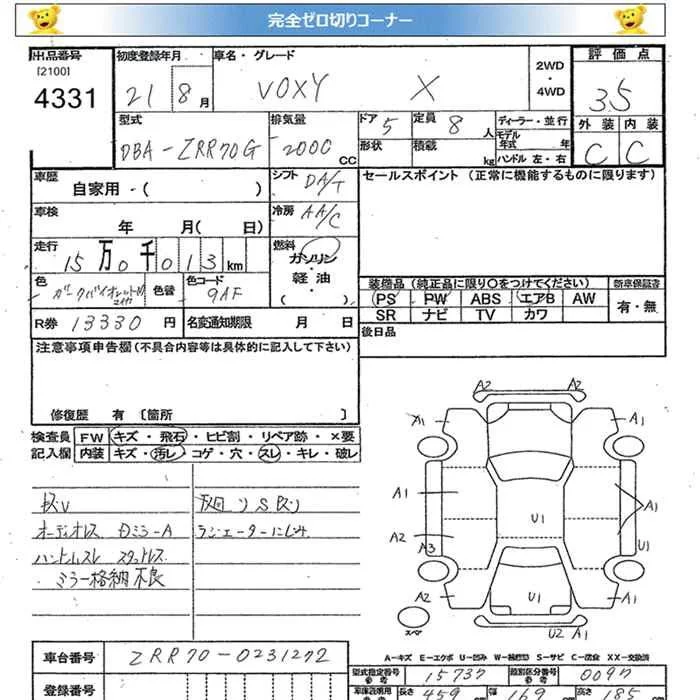 完全ゼロ切りコーナー
出品番号 初度登録年月 車名・グレード 2WD・4WD 評価点
[2100]
4331 21 8月 VOXY X 3.5
型式 排気量 ドア 5 定員 8人 ディーラー・並行 外装 内装
DBA-ZRR70G 2000 CC 形状 積載 kg モデル年式 年 C C
ハンドル 左・右
車歴 自家用・( ) シフト DA/T セールスポイント (正常に機能するものに限ります)
車検 年 月( 日) 冷房 AA/C
走行 15万0千013km 燃料 ガソリン 軽油 ( )
色 色替 色コード 9AF
装備品(純正品に限り○をつけてください) 新車保証書
PS PW ABS エアB AW 有・無
SR ナビ TV カワ
R券 13330円 名変通知期限 月 日 後日品
注意事項申告欄(不具合内容等は具体的に記入して下さい)
修復歴 有 [箇所 ]
検査員 FW キズ・飛石・ヒビ割・リペア跡・×要
記入欄 内装 キズ・汚レ・コゲ・穴・スレ・キレ・破レ
オーディオレス
ラジエーターにじみ
ミラー格納不良
A2 A2
A1 A1
A1 A1
U1
A2
A3 U1
U1
A2 A1
U2 A1
スペア
A-キズ E-エクボ U-凹み W-補修跡 S-サビ C-腐食 XX-交換済
車台番号 ZRR70-0231272
型式指定番号 参考 15737 類別区分番号 参考 0097
登録番号
長さ 459 幅 169 高さ 185